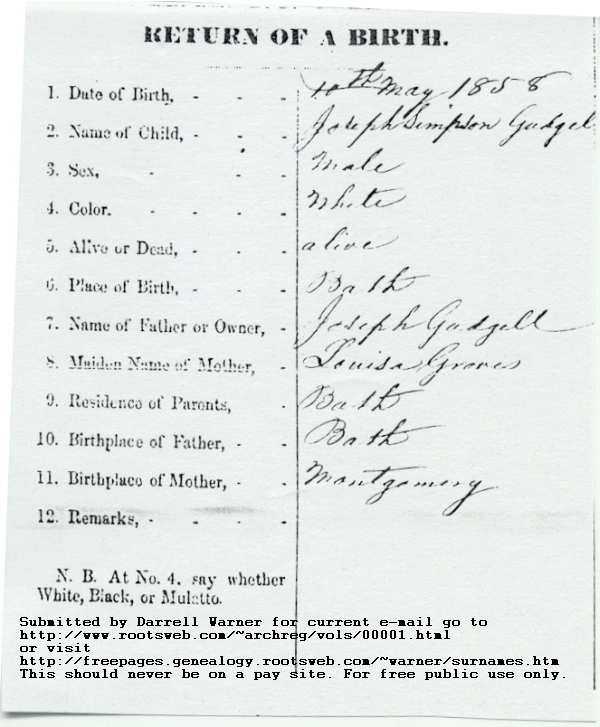 RETURN OF A BIRTH.
1. Date of Birth, - - - 10th May 1858
2. Name of Child, - - - Joseph Simpson Gudgel
3. Sex, - - - Male
4. Color. - - - - White
5. Alive or Dead, - - - alive
6. Place of Birth, - - - Bath
7. Name of Father or Owner, - Joseph Gudgell
8. Maiden Name of Mother, - Louisa Groves
9. Residence of Parents, - Bath
10. Birthplace of Father, - - Bath
11. Birthplace of Mother, - - Montgomery
12. Remarks, - - - -
N. B. At No. 4, say whether
White, Black, or Mulatto.
Submitted by Darrell Warner for current e-mail go to
http://www.rootsweb.com/~archreg/vols/00001.html
or visit
http://freepages.genealogy.rootsweb.com/~warner/surnames.htm
This should never be on a pay site. For free public use only.